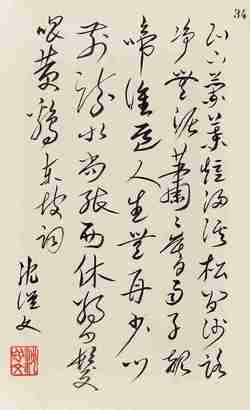 34
山下蘭芽短浸溪松間沙路
淨無泥蕭〻暮雨子規
啼誰道人生無再少門
前流水尚能西休將白髮
唱黃鷄東坡詞
沈從文